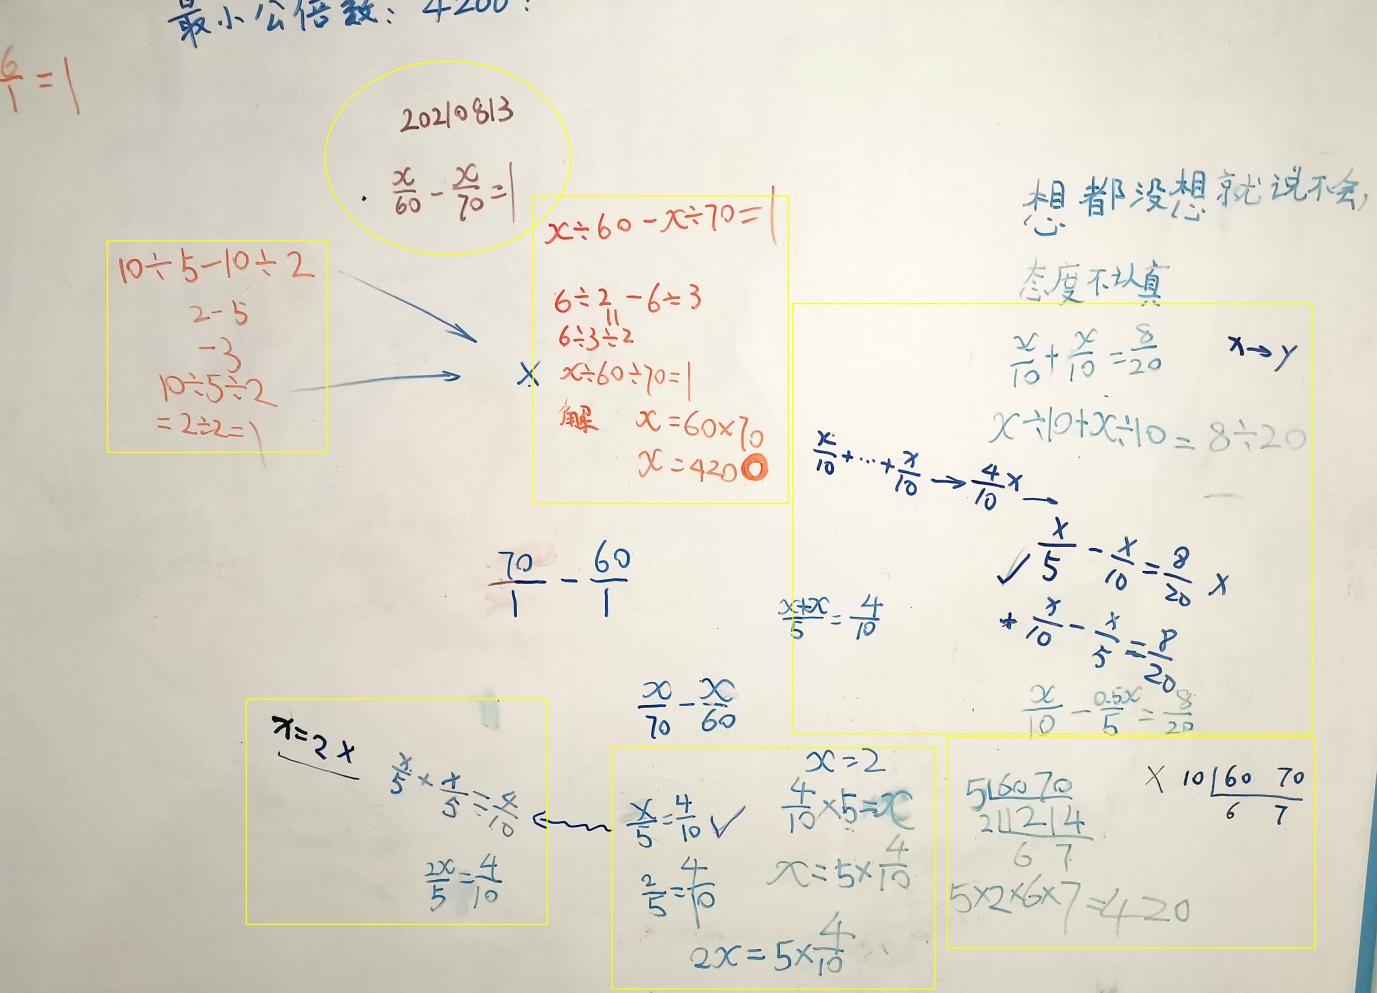 最小公倍数: 4200!
6/1 = 1
20210813
x/60 - x/70 = 1
10÷5-10÷2
2-5
-3
10÷5÷2
=2÷2=1
x÷60-x÷70=1
6÷2-6÷3
||
6÷3÷2
X x÷60÷70=1
解 x=60×70
x=4200
想都没想就说不会,
态度不认真
x/10 + x/10 = 8/20
x→y
x÷10+x÷10=8÷20
x/10 + … + x/10 → 4/10 x →
✓ x/5 - x/10 = 8/20 x
x/10 - x/5 = 8/20
x/10 - 0.5x/5 = 8/20
70/1 - 60/1
x+x/5 = 4/10
x/70 - x/60
x=2x
x/5 + x/5 = 4/10
2x/5 = 4/10
x=2
x/5 = 4/10 ✓
4/10 ×5=x
2/5 = 4/10
x=5× 4/10
2x=5× 4/10
5 60 70
2 12 14
6 7
5×2×6×7=420
X 10 60 70
6 7